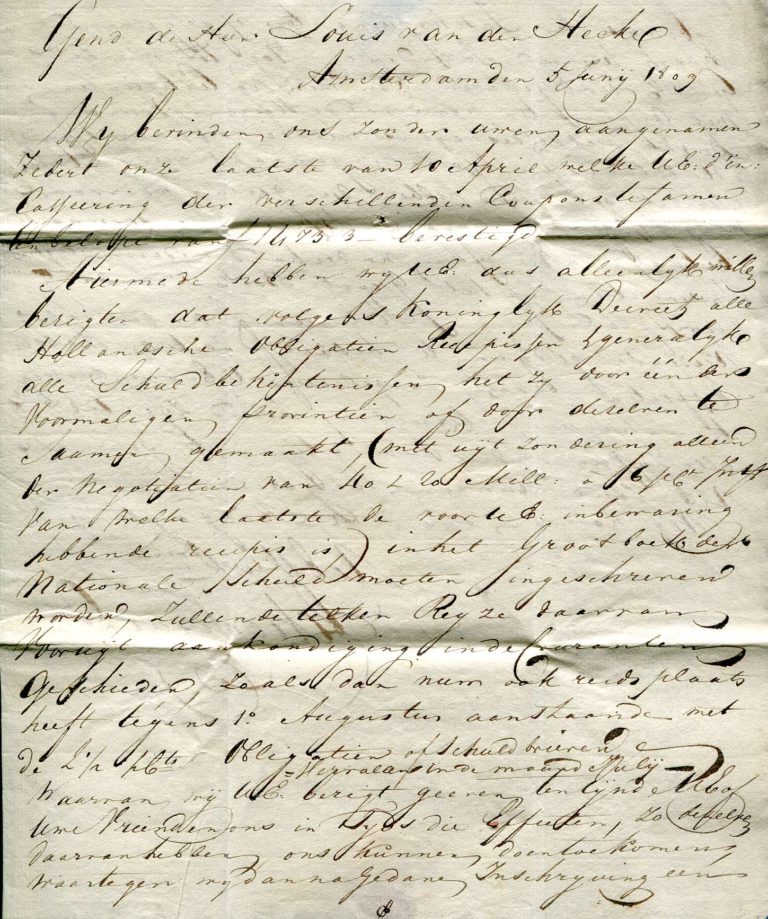 Gend de Heer Louis van den Hecke
Amsterdam den 5 Junij 1809
Wy bevinden ons zonder uwen aangenamen
Zedert onze laatste van 10 April welke UE: d'in:
Casseering der verschillenden Coupons te samen
ten beloope van ƒ 1473.3 — bevestigd
Hiermede hebben wy UE. dus alleenlyk willen
berigten dat volgens Koninglyk Decreet alle
Hollandsche Obligatien Recipissen & generalyk
alle Schuldbekentenissen, het zy door één der
Voormaligen Provintien of door dezelven te
Saamen gemaakt, (met uijtzondering alleen
der Negotiatien van 40 & 20 Mill: a 6 pCt Int:
Van welke laatste de voor UE: in bewaring
hebbende recipis is) in het Groot boek der
Nationale Schuld moeten ingeschreven
worden, zullende telken Reyze daarvan
Vooruijt aankondiging in de Couranten
Geschieden, zo als dan nu ook reeds plaats
heeft tegens 1o Augustus aanstaande met
de 2½ pCto Obligatien of Schuldbrieven
in de maand Julij
Waarvan wij UE. berigt geeven ten eijnde UE of
Uwe Vrienden ons in tyds die Effecten, zo dezelve
daarvan hebben, ons kunnen doen toekomen,
waartegen wy dan na Gedane Inschryving een